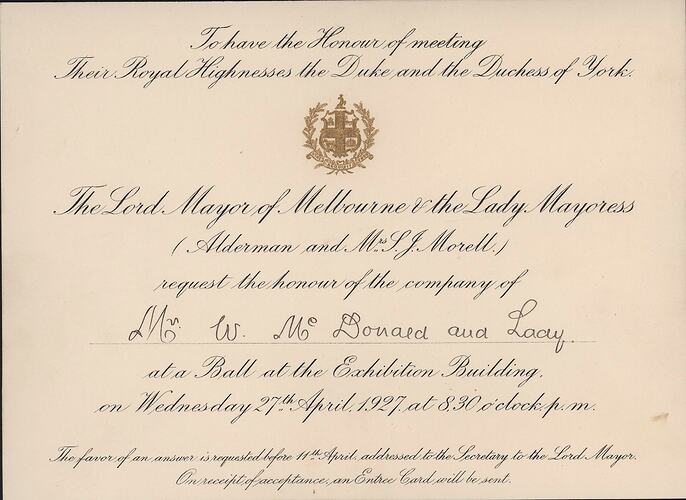 To have the Honour of meeting
Their Royal Highnesses the Duke and the Duchess of York.
The Lord Mayor of Melbourne & the Lady Mayoress
(Alderman and Mrs S. J. Morell.)
request the honour of the company of
Mr. W. Mc Donald and Lady.
at a Ball at the Exhibition Building,
on Wednesday 27th April, 1927, at 8.30 o'clock, p.m.
The favor of an answer is requested before 11th April, addressed to the Secretary to the Lord Mayor.
On receipt of acceptance, an Entree Card will be sent.